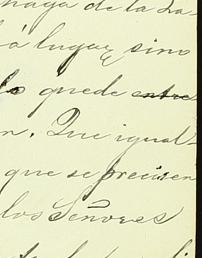 haga de la La-
á lugar, sino
lo quede entre
n. Que igual-
que se precisen
los Señores